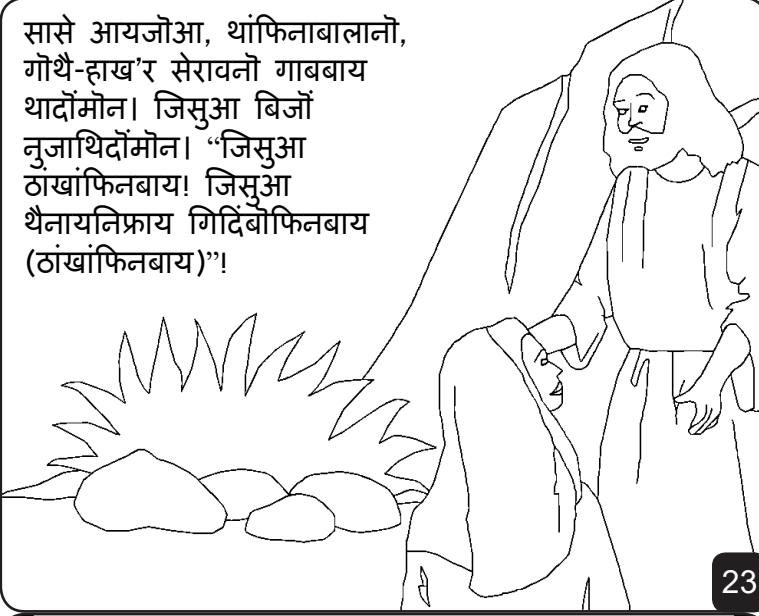 सासे आयजॊआ, थांफिनाबालानॊ,
गॊथै-हाख’र सेरावनॊ गाबबाय
थादॊंमॊन। जिसुआ बिजॊं
नुजाथिदॊंमॊन। “जिसुआ
ठांखांफिनबाय! जिसुआ
थैनायनिफ्राय गिदिंबॊफिनबाय
(ठांखांफिनबाय)”!
23